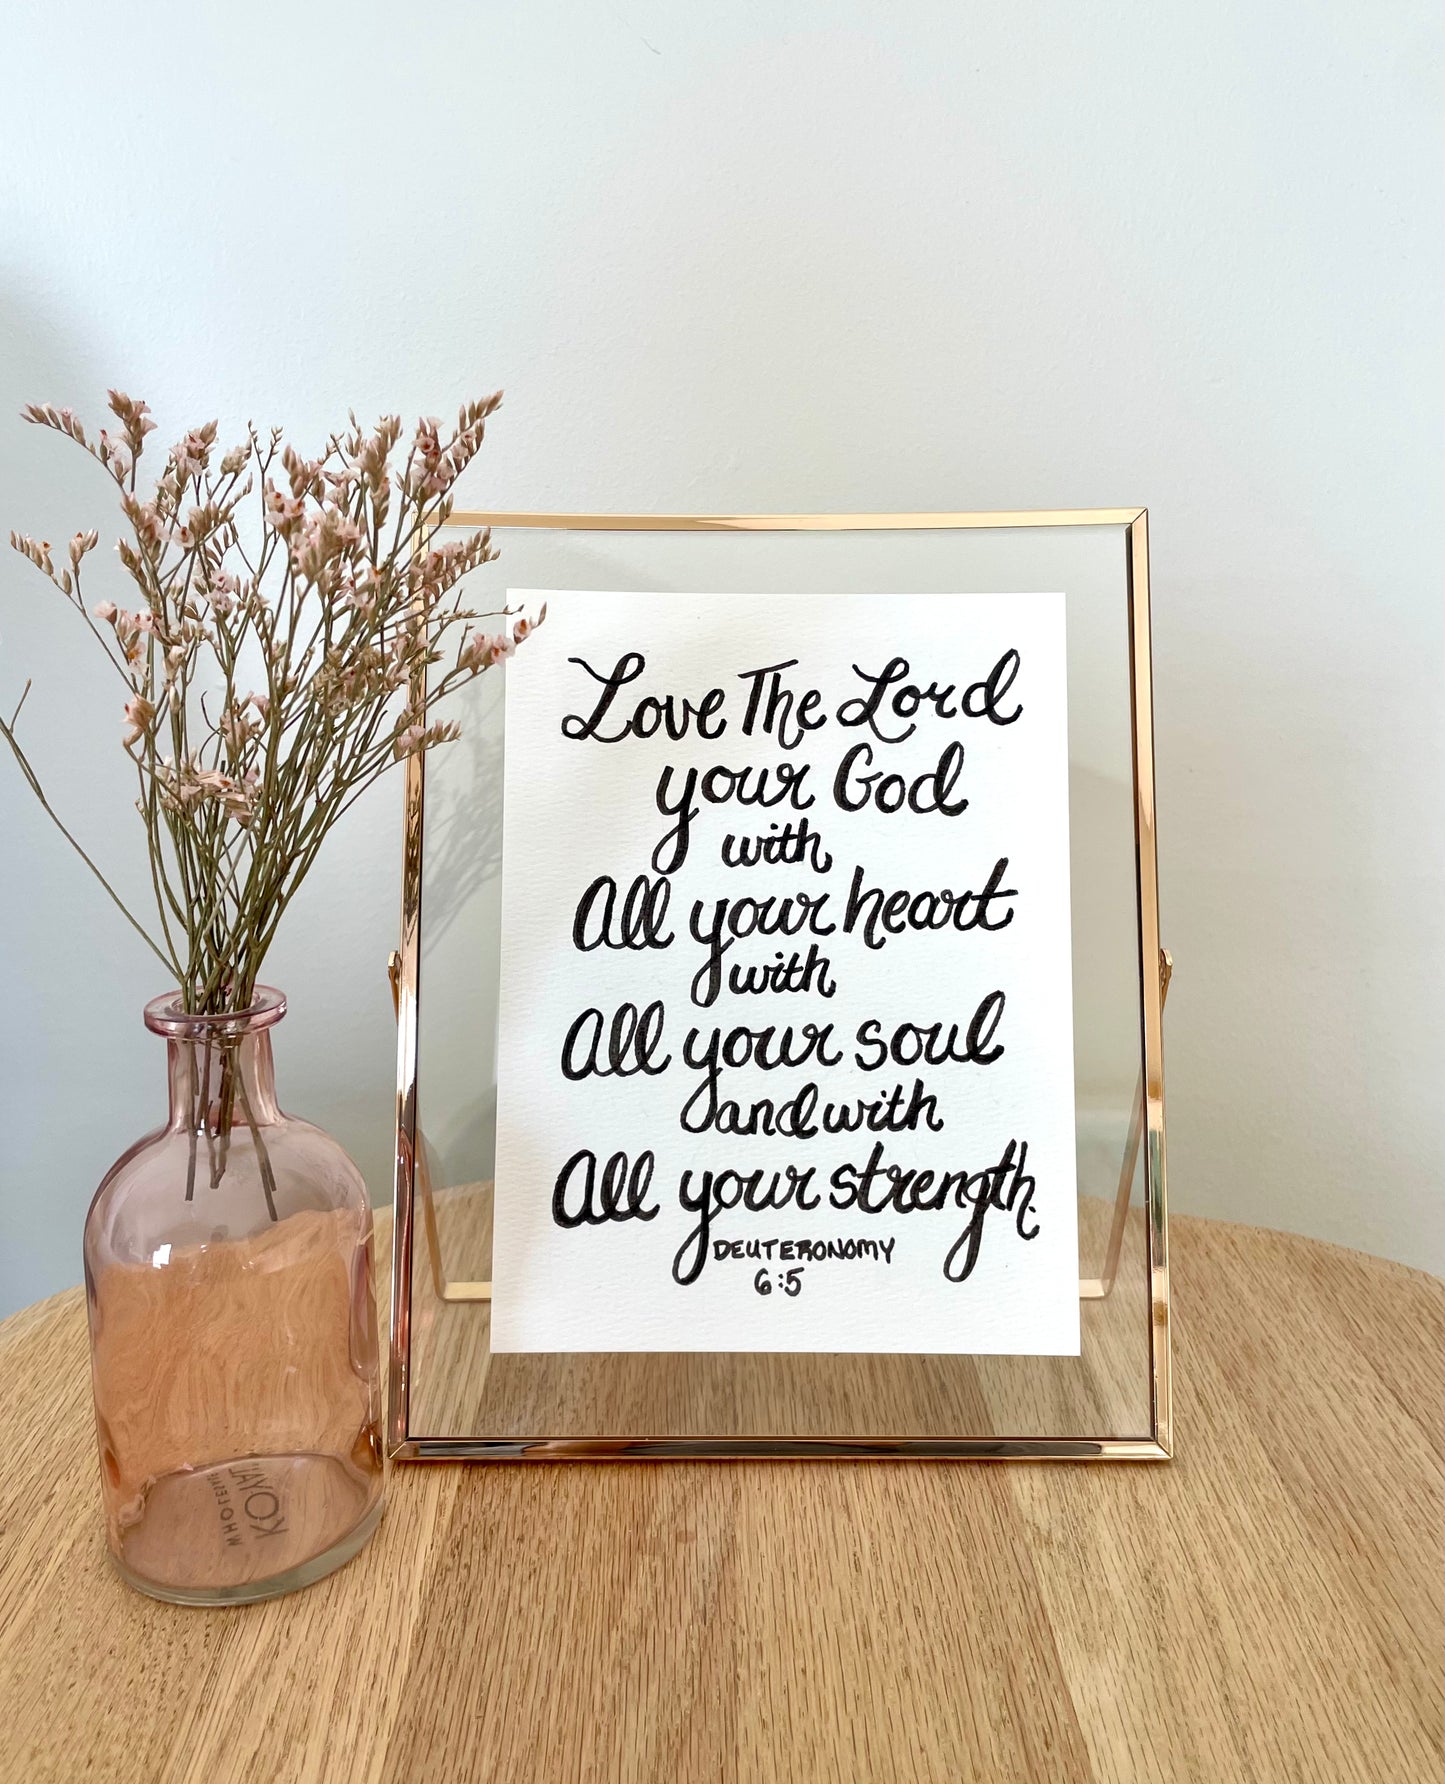 Love The Lord
your God
with
All your heart
with
All your soul
and with
All your strength.
DEUTERONOMY
6:5
KOYAL